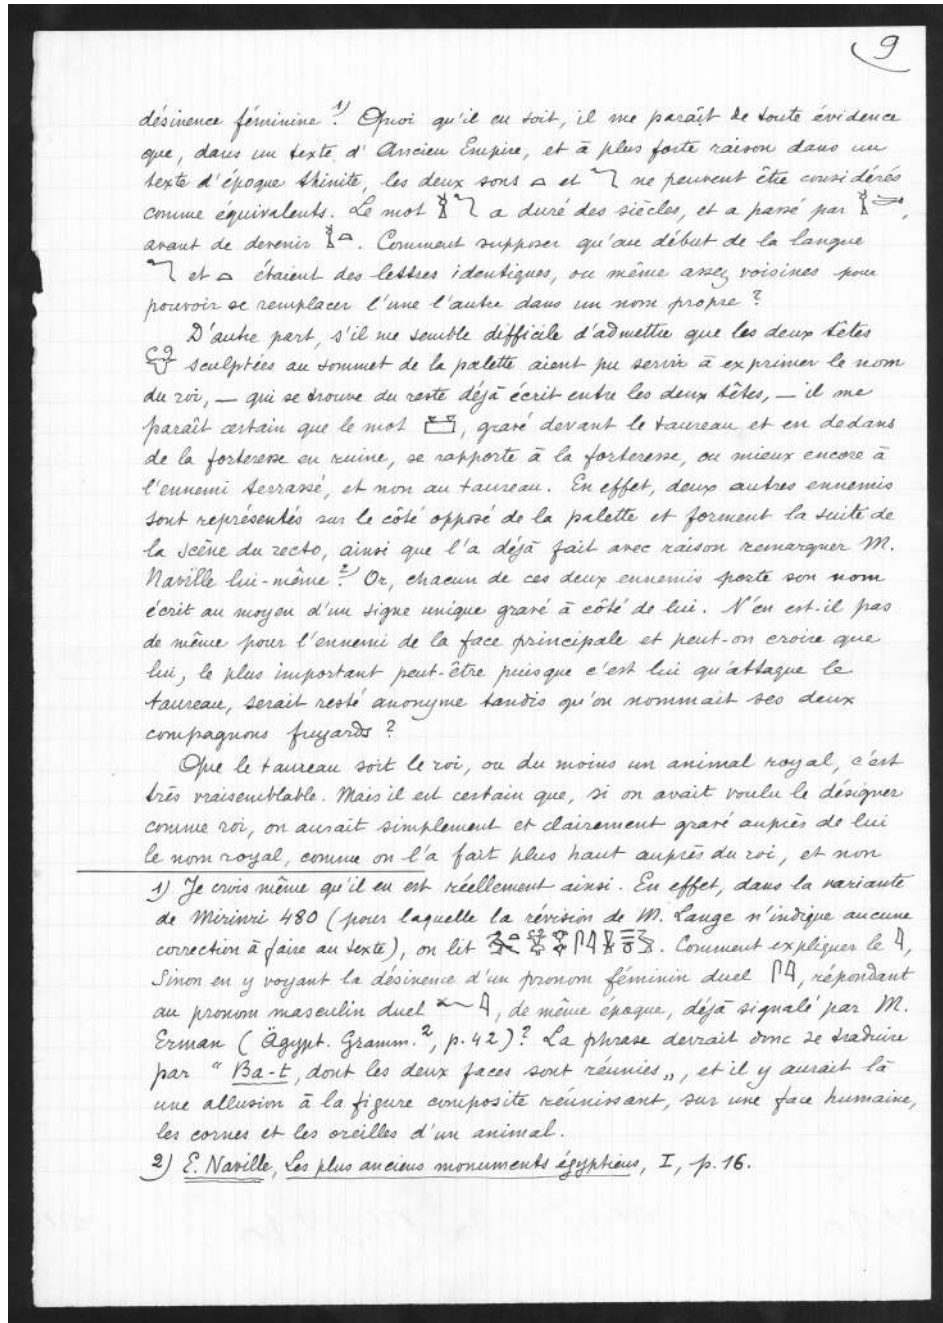 9
désinence féminine 1)? Quoi qu'il en soit, il me paraît de toute évidence
que, dans un texte d'Ancien Empire, et à plus forte raison dans un
texte d'époque thinite, les deux sons 𓏏 et 𓆓 ne peuvent être considérés
comme équivalents. Le mot a duré des siècles, et a passé par ,
avant de devenir . Comment supposer qu'au début de la langue
𓆓 et 𓏏 étaient des lettres identiques, ou même assez voisines pour
pouvoir se remplacer l'une l'autre dans un nom propre ?
D'autre part, s'il me semble difficile d'admettre que les deux têtes
sculptées au sommet de la palette aient pu servir à exprimer le nom
du roi, — qui se trouve du reste déjà écrit entre les deux têtes, — il me
paraît certain que le mot , gravé devant le taureau et en dedans
de la forteresse en ruine, se rapporte à la forteresse, ou mieux encore à
l'ennemi terrassé, et non au taureau. En effet, deux autres ennemis
sont représentés sur le côté opposé de la palette et forment la suite de
la scène du recto, ainsi que l'a déjà fait avec raison remarquer M.
Naville lui-même 2). Or, chacun de ces deux ennemis porte son nom
écrit au moyen d'un signe unique gravé à côté de lui. N'en est-il pas
de même pour l'ennemi de la face principale et peut-on croire que
lui, le plus important peut-être puisque c'est lui qu'attaque le
taureau, serait resté anonyme tandis qu'on nommait ses deux
compagnons fuyards ?
Que le taureau soit le roi, ou du moins un animal royal, c'est
très vraisemblable. Mais il est certain que, si on avait voulu le désigner
comme roi, on aurait simplement et clairement gravé auprès de lui
le nom royal, comme on l'a fait plus haut auprès du roi, et non
1) Je crois même qu'il en est réellement ainsi. En effet, dans la variante
de Mirinri 480 (pour laquelle la révision de M. Lange n'indique aucune
correction à faire au texte), on lit . Comment expliquer le 𓇋,
sinon en y voyant la désinence d'un pronom féminin duel 𓋴𓇋, répondant
au pronom masculin duel 𓆑𓇋, de même époque, déjà signalé par M.
Erman (Ägypt. Gramm.², p. 42) ? La phrase devrait donc se traduire
par "Ba-t, dont les deux faces sont réunies„, et il y aurait là
une allusion à la figure composite réunissant, sur une face humaine,
les cornes et les oreilles d'un animal.
2) E. Naville, Les plus anciens monuments égyptiens, I, p. 16.